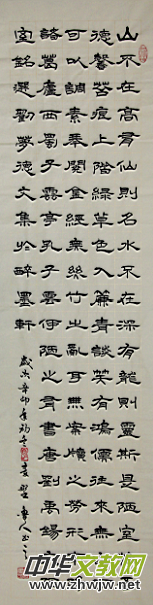 山不在高有仙則名水不在深有龍則靈斯是陋室惟吾
德馨苔痕上階綠草色入簾青談笑有鴻儒往來無白丁
可以調素琴閱金經無絲竹之亂耳無案牘之勞形南陽
諸葛廬西蜀子雲亭孔子云何陋之有書唐劉禹錫陋
室銘選劉夢德文集於醉墨軒
歲次辛卯年初冬
中华文教网
ZHWJW.COM